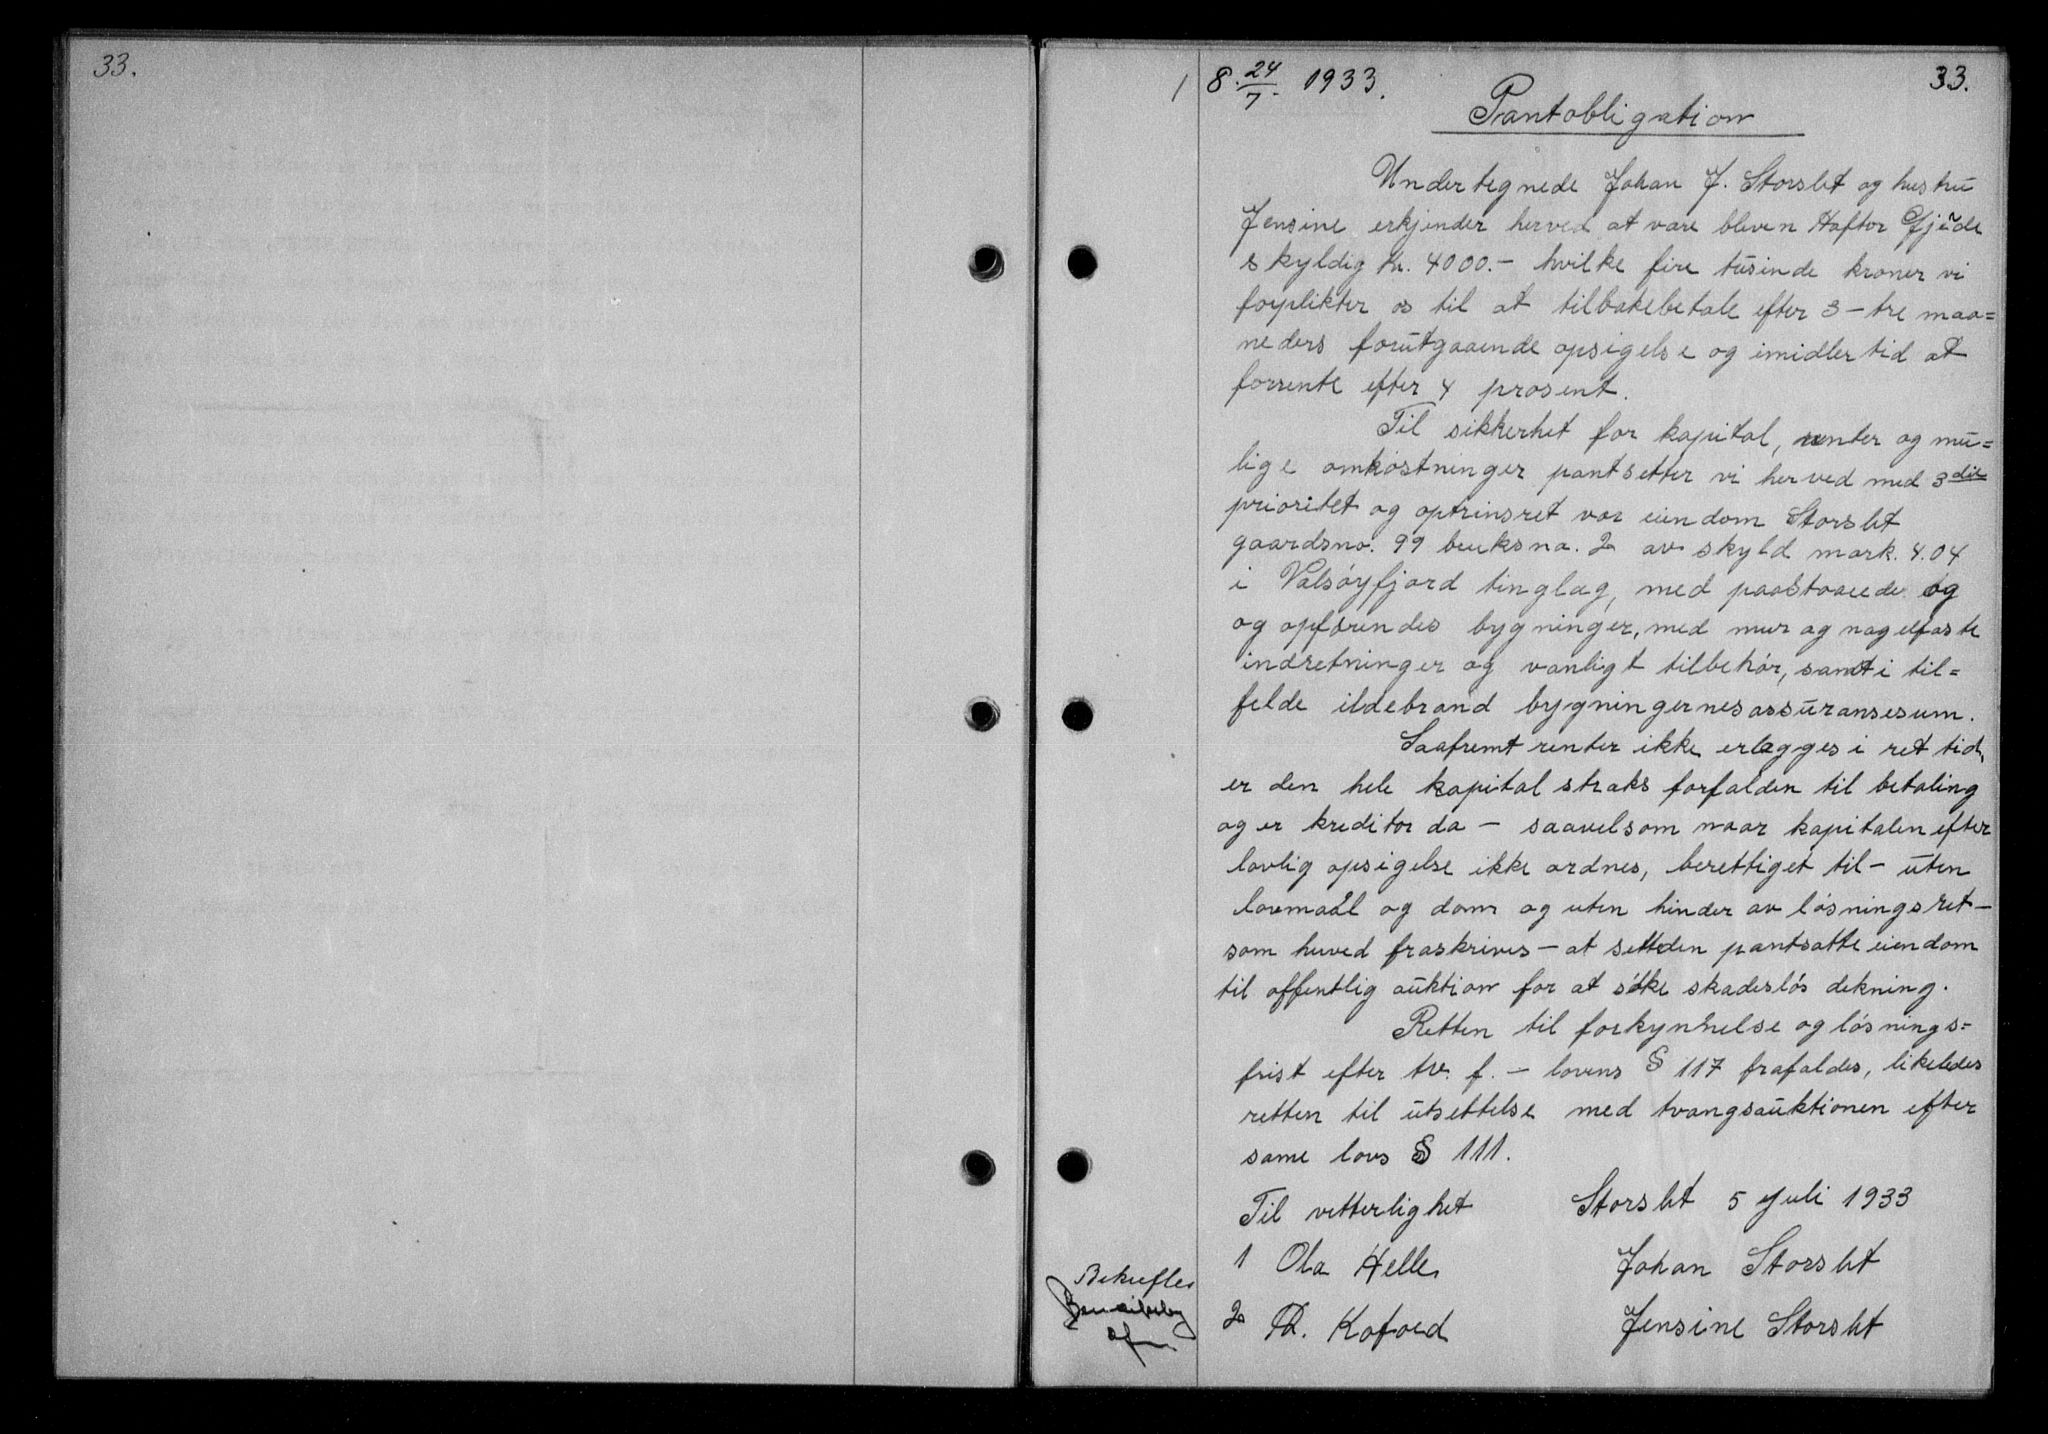 33.
8. 24/7. 1933.
33.
Pantobligation
Undertegnede Johan J. Storslet og hustru
Jensine erkjender herved at være bleven Haftor Gjøde
skyldig kr. 4000.- hvilke fire tusinde kroner vi
forplikter os til at tilbakebetale efter 3 - tre maa=
neders forutgaaende opsigelse og imidlertid at
forrente efter 4 prosent.
Til sikkerhet for kapital, renter og mu=
lige omkostninger pantsetter vi herved med 3die
prioritet og optrinsret vor eiendom Storslet
gaardsno. 99 bruksno. 2 av skyld mark. 4.04
i Valsøyfjord tinglag, med paastaaede og
og opførendes bygninger, med mur og nagelfaste
indretninger og vanligt tilbehør, samt i til=
felde ildebrand bygningernes assuransesum.
Saafremt renter ikke erlægges i ret tid,
er den hele kapital straks forfalden til betaling
og er kreditor da - saavelsom naar kapitalen efter
lovlig opsigelse ikke ordnes, berettiget til - uten
lovmaal og dom og uten hinder av løsningsret -
som herved fraskrives - at sette den pantsatte eiendom
til offentlig auktion for at søke skadesløs dekning.
Retten til forkynnelse og løsnings=
frist efter tv. f. - lovens § 117 frafaldes, likeledes
retten til utsettelse med tvangsauktionen efter
same lovs § 111.
Til vitterlighet Storslet 5 Juli 1933
1 Ola Helle Johan Storslet
2 Th. Kofoed Jensine Storslet
Bekreftes